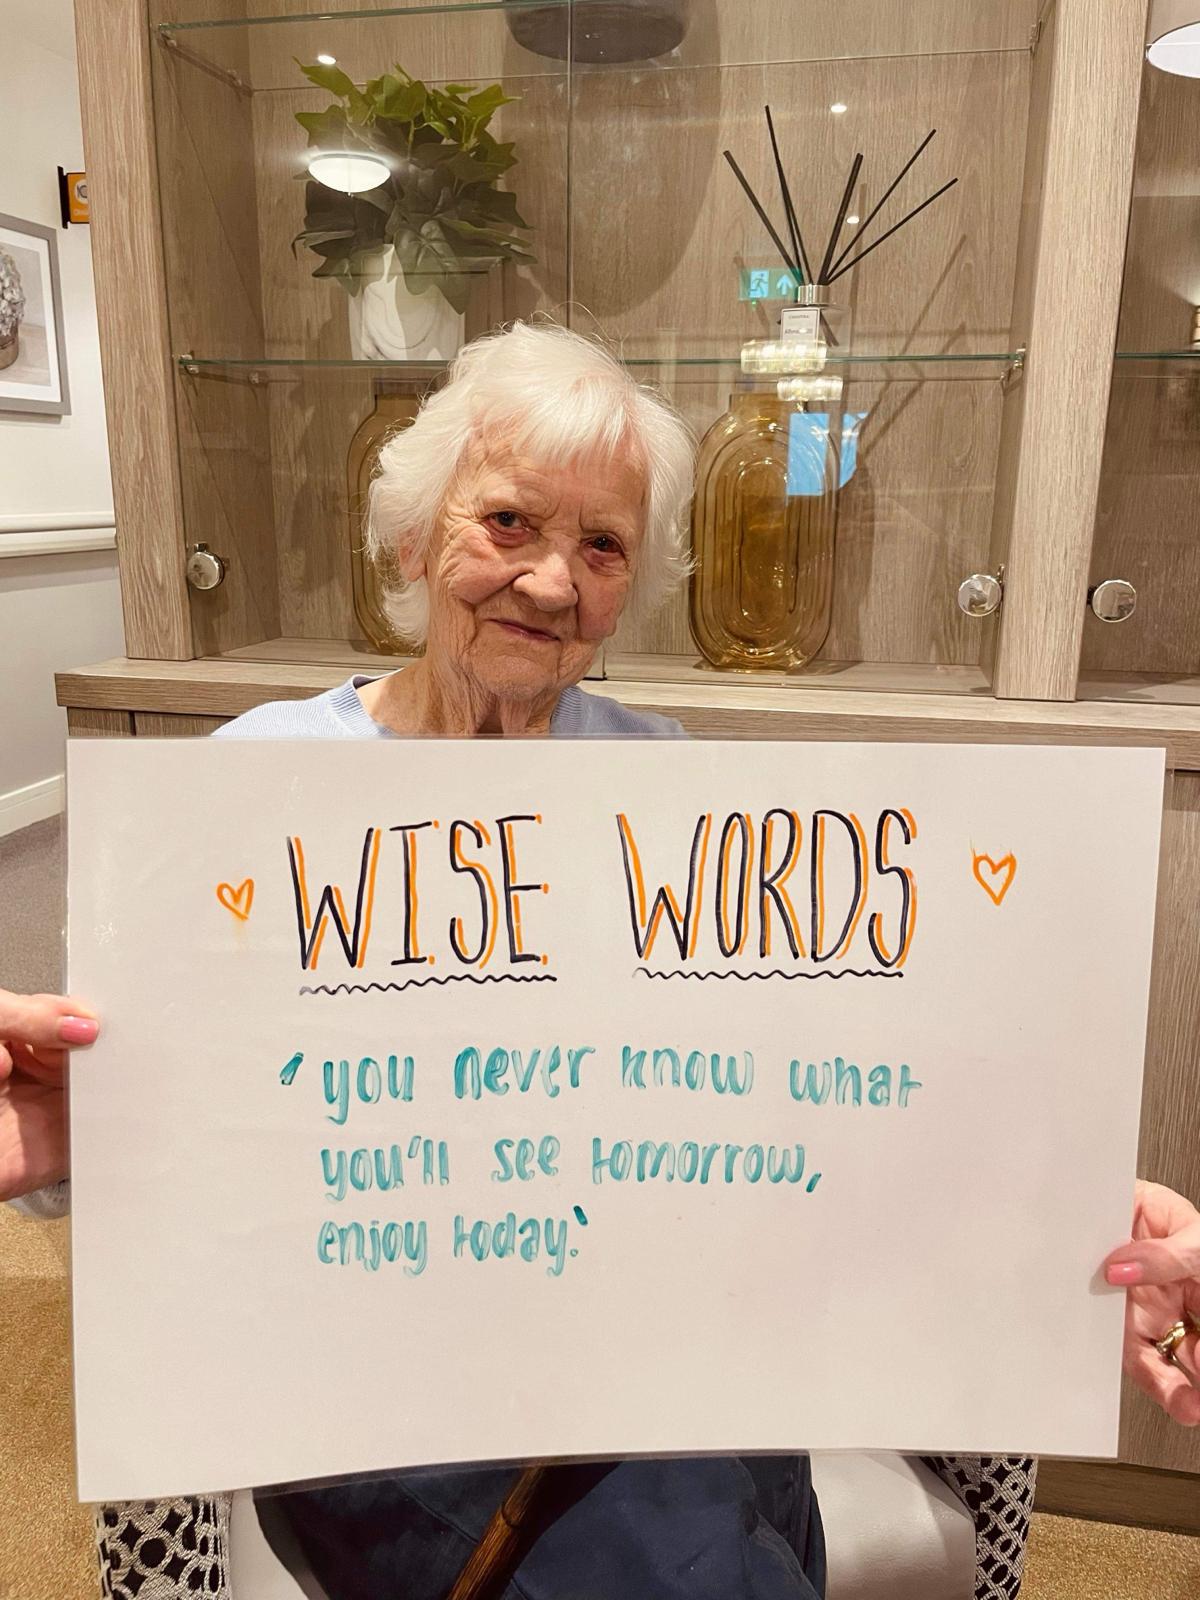 WISE WORDS
'you never know what
you'll see tomorrow,
enjoy today.'